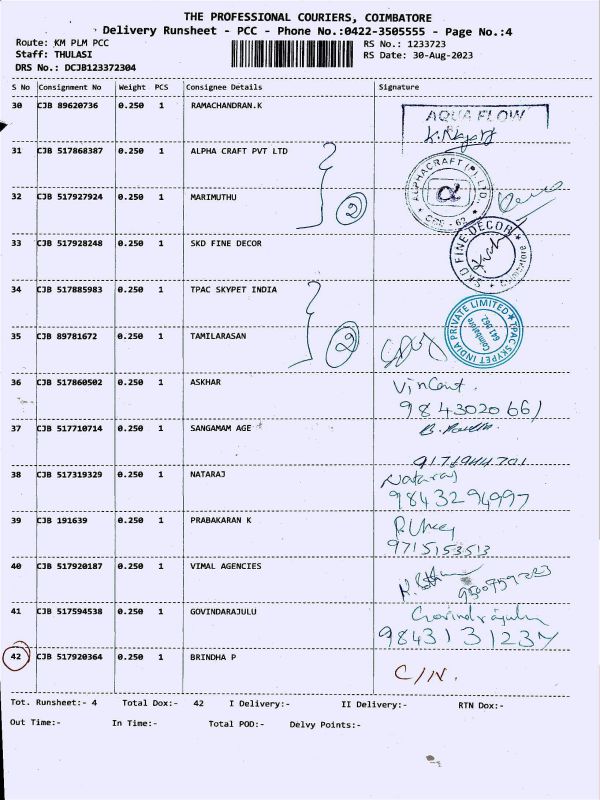 THE PROFESSIONAL COURIERS, COIMBATORE
Delivery Runsheet - PCC - Phone No.:0422-3505555 - Page No.:4
Route: KM PLM PCC
RS No.: 1233723
Staff: THULASI
RS Date: 30-Aug-2023
DRS No.: DCJB123372304
S No Consignment No Weight PCS Consignee Details Signature
30 CJB 89620736 0.250 1 RAMACHANDRAN.K AQUA FLOW
31 CJB 517868387 0.250 1 ALPHA CRAFT PVT LTD ALPHACRAFT (P) LTD.
32 CJB 517927924 0.250 1 MARIMUTHU 2
33 CJB 517928248 0.250 1 SKD FINE DECOR SKD FINE DECOR
34 CJB 517885983 0.250 1 TPAC SKYPET INDIA TPAC SKYPET INDIA PRIVATE LIMITED Coimbatore 641 062
35 CJB 89781672 0.250 1 TAMILARASAN 2
36 CJB 517860502 0.250 1 ASKHAR Vincent.
9843020661
37 CJB 517710714 0.250 1 SANGAMAM AGE
9176944701
38 CJB 517319329 0.250 1 NATARAJ Nataraj
9843294997
39 CJB 191639 0.250 1 PRABAKARAN K
9715153513
40 CJB 517920187 0.250 1 VIMAL AGENCIES
41 CJB 517594538 0.250 1 GOVINDARAJULU Govindrajulu
42 CJB 517920364 0.250 1 BRINDHA P C/N.
Tot. Runsheet:- 4 Total Dox:- 42 I Delivery:- II Delivery:- RTN Dox:-
Out Time:- In Time:- Total POD:- Delvy Points:-